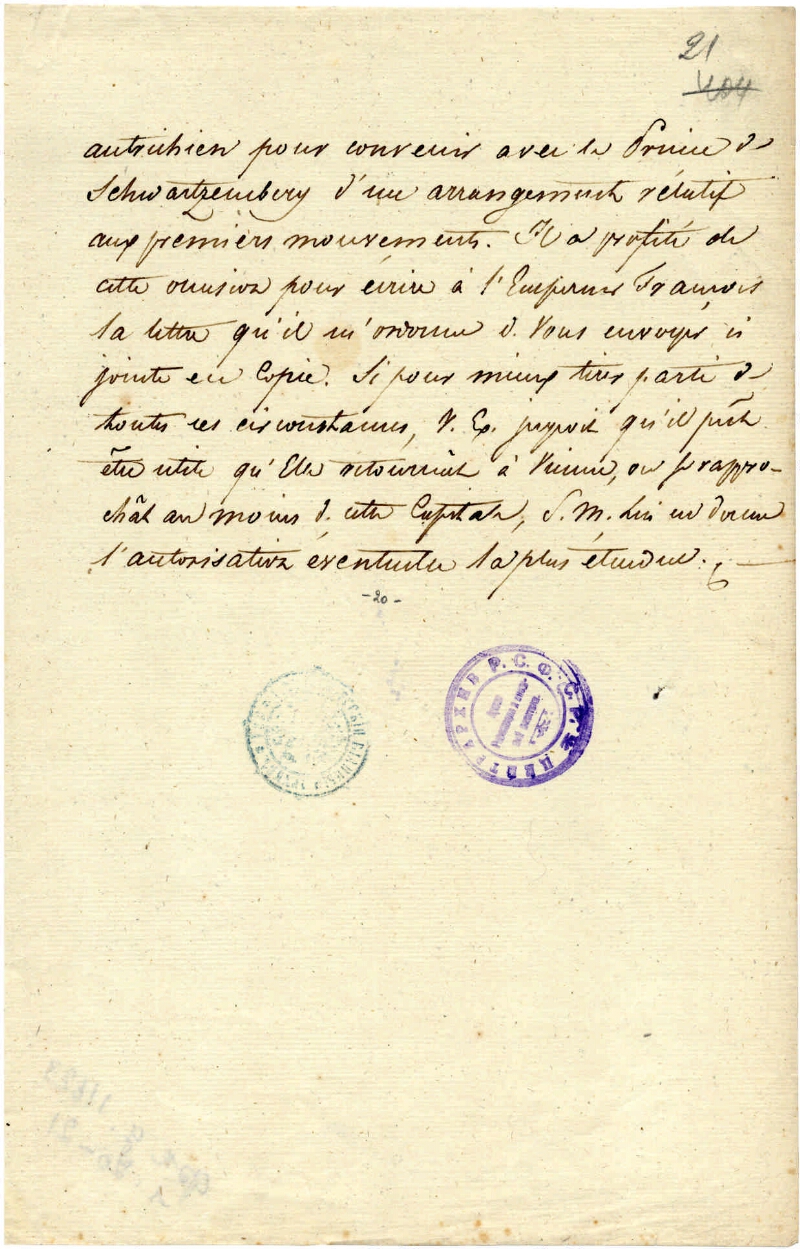 21
autrichien pour convenir avec le Prince de
Schwartzemberg d'un arrangement rélatif
aux premiers mouvements. Il a profité de
cette occasion pour écrire à l'Empereur François
la lettre qu'il m'ordonne de Vous envoyer ci
jointe en Copie. Si pour mieux tirer parti de
toutes ces circonstances, V. Ex. jugeoit qu'il pût
être utile qu'Elle retournât à Vienne, ou se rappro-
chât au moins de cette Capitale, S. M. Lui en donne
l'autorisation éventuelle la plus étendue.
-20-
ЦЕНТРАРХИВ Р.С.Ф.С.Р.